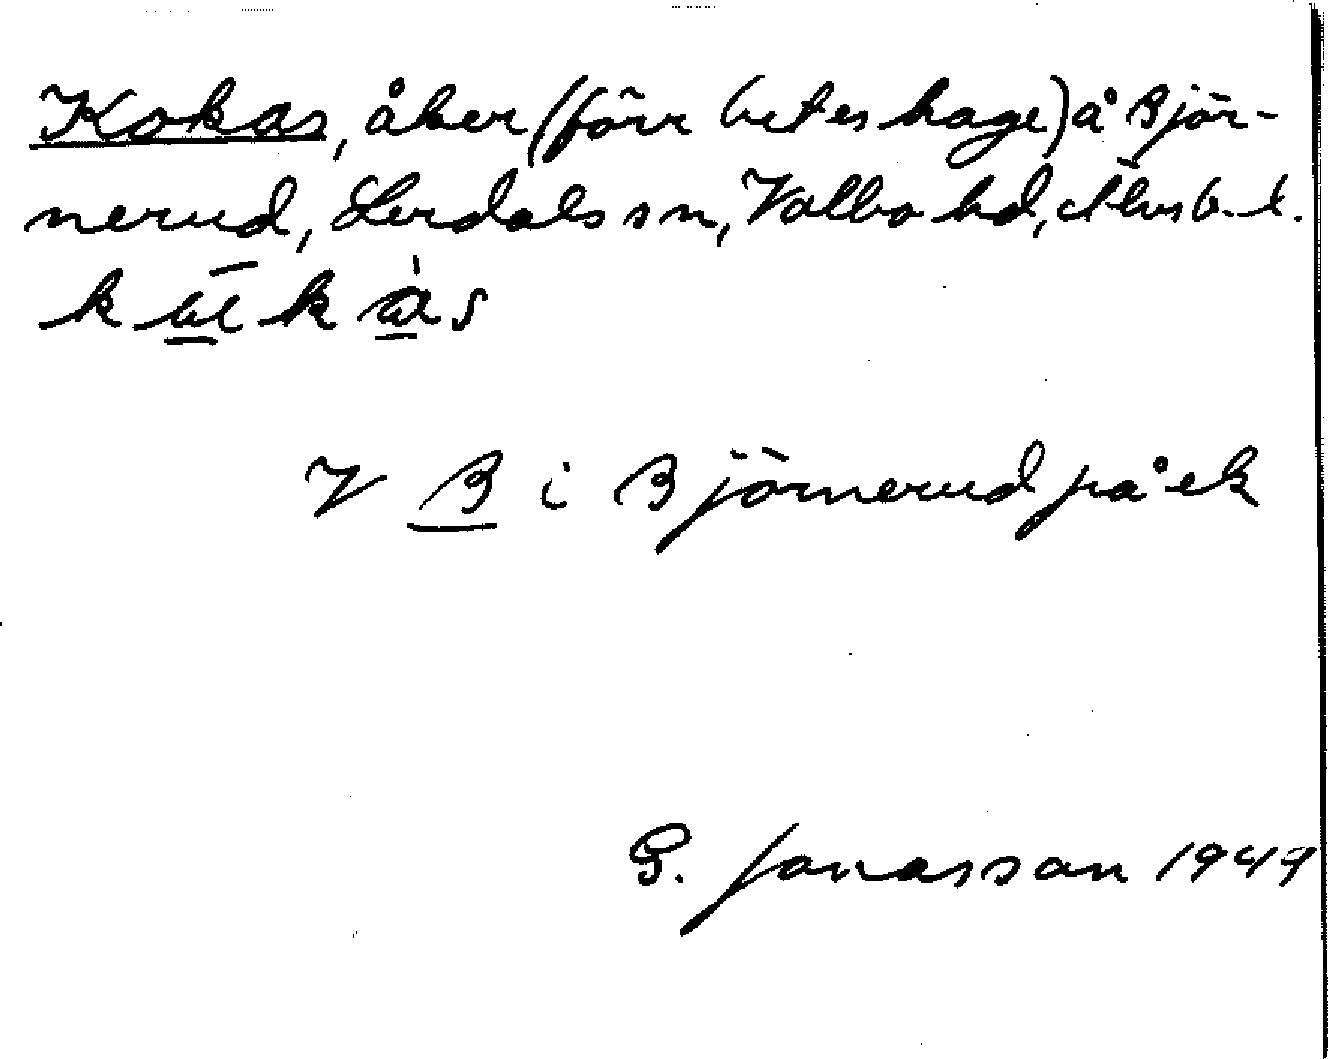 Kokas, åker (förr beteshage) å Björ-
nerud, Lerdals sn, Valbo hd, Älvsb. l.
V B i Björnerud på ek
G. Jonasson 1949